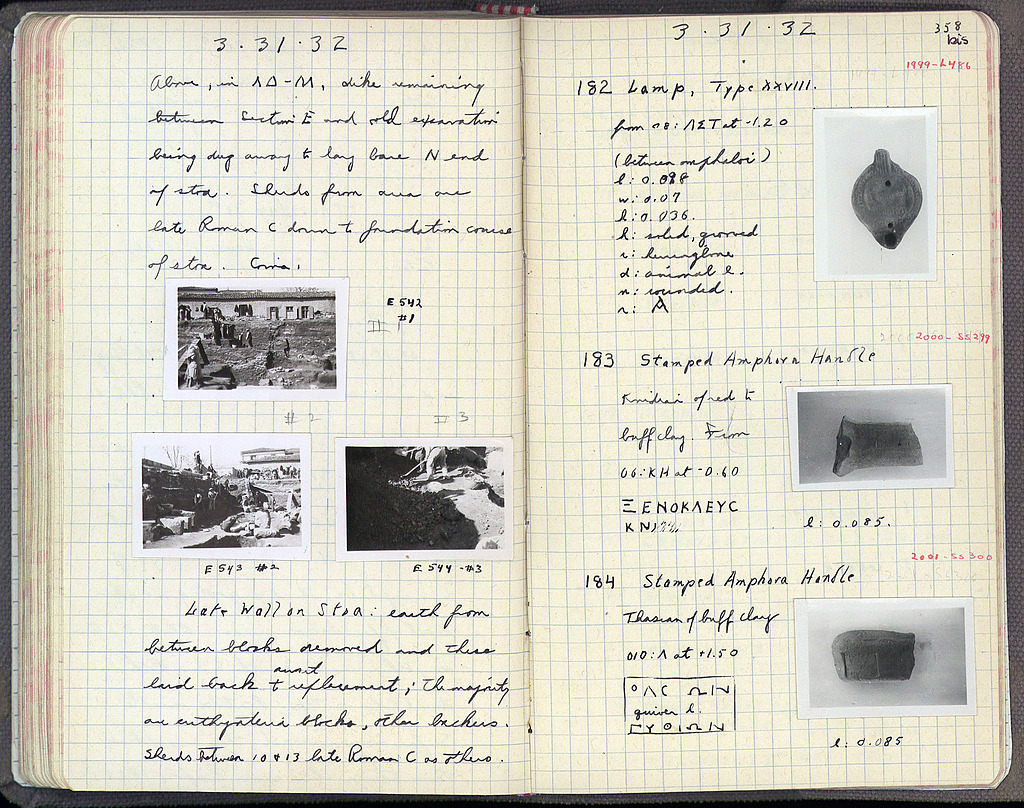 3·31·32
Above, in ΛΔ-Μ, dike remaining
between Section E and old excavation
being dug away to lay bare N end
of stoa. Sherds from area are
late Roman C down to foundation course
of stoa. Coins.
E 542
#1
#2
#3
E 543 #2
E 544 - #3
Late Wall on Stoa: earth from
between blocks removed and these
await
laid back + replacement; the majority
are euthynteria blocks, other backers.
Sherds between 10 & 13 late Roman C as others.
3·31·32
358
bis
1999-L486
182 Lamp, Type XXVIII.
from 08: ΛΣΤ at -1.20
(between omphaloi)
l: 0.098
w: 0.07
h: 0.036.
h: solid, grooved
r: herringbone
d: animal l.
n: rounded.
r: A
2000-SS299
183 Stamped Amphora Handle
Knidian of red to
buff clay. From
06: KH at -0.60
ΞΕΝΟΚΛΕΥϹ
ΚΝΙ
l: 0.085.
2001-SS300
184 Stamped Amphora Handle
Thasian of buff clay
010: Λ at +1.50
ΘΑϹ ΩΙΝ
quiver l.
ΓΥΘΙΩΝ
l: 0.085